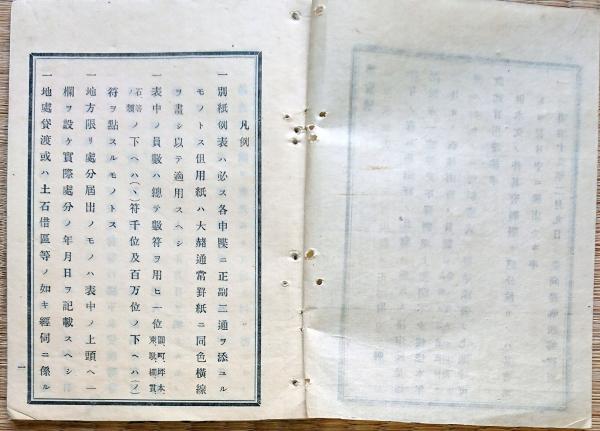 凡例
一別紙例表ハ必ス各申牒ニ正副二通ヲ添ユル
モノトス但用紙ハ大赭通常罫紙ニ同色横線
ヲ畫シ以テ適用スヘシ
一表中ノ員數ハ總テ數符ヲ用ヒ一位圓、町、坪、本、束、
ノ下ヘハ(、)符千位及百万位ノ下ヘハ(ノ)
符ヲ點スルモノトス
一地方限リ處分屆出ノモノハ表中ノ上頭ヘ一
欄ヲ設ケ實際處分ノ年月日ヲ記載スヘシ
一地處貸渡或ハ土石借區等ノ如キ經伺ニ係ル
一